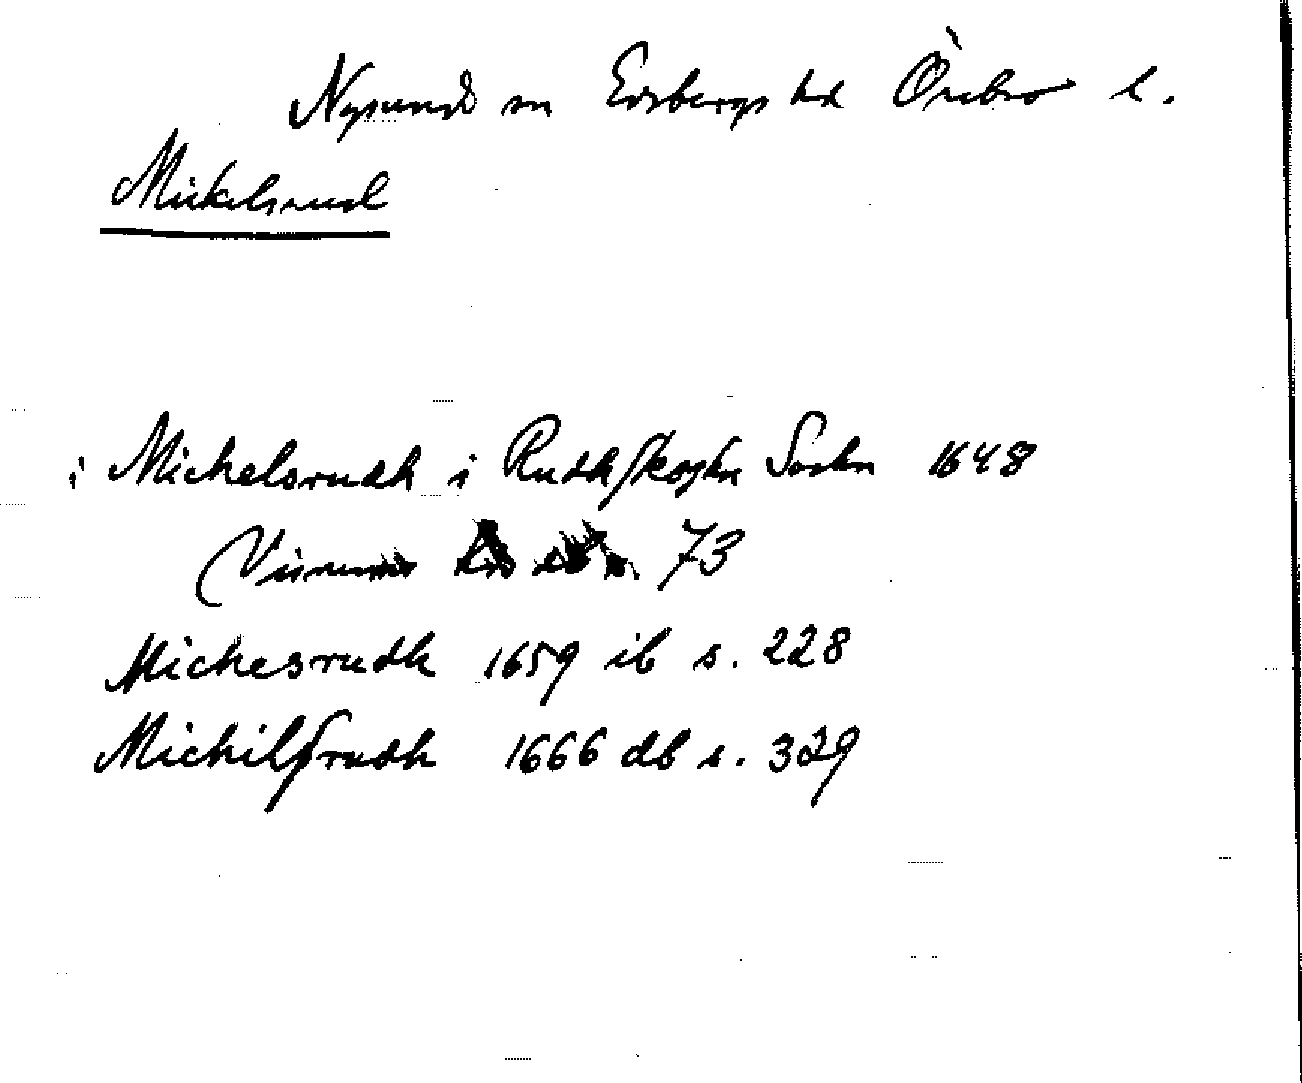 Nysund sn Edsbergs hd Örebro l.
Mickelsrud
i Michelsrudh i Rudhskogha Sochn 1648
73
Michesrudh 1659 ib s. 228
Michilsrudh 1666 db s. 329